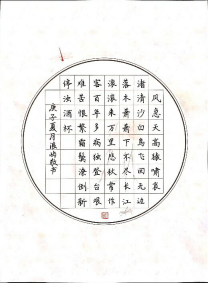 风急天高猿啸哀
渚清沙白鸟飞回无边
落木萧萧下不尽长江
滚滚来万里悲秋常作
客百年多病独登台艰
难苦恨繁霜鬓潦倒新
停浊酒杯
庚子夏月敬书